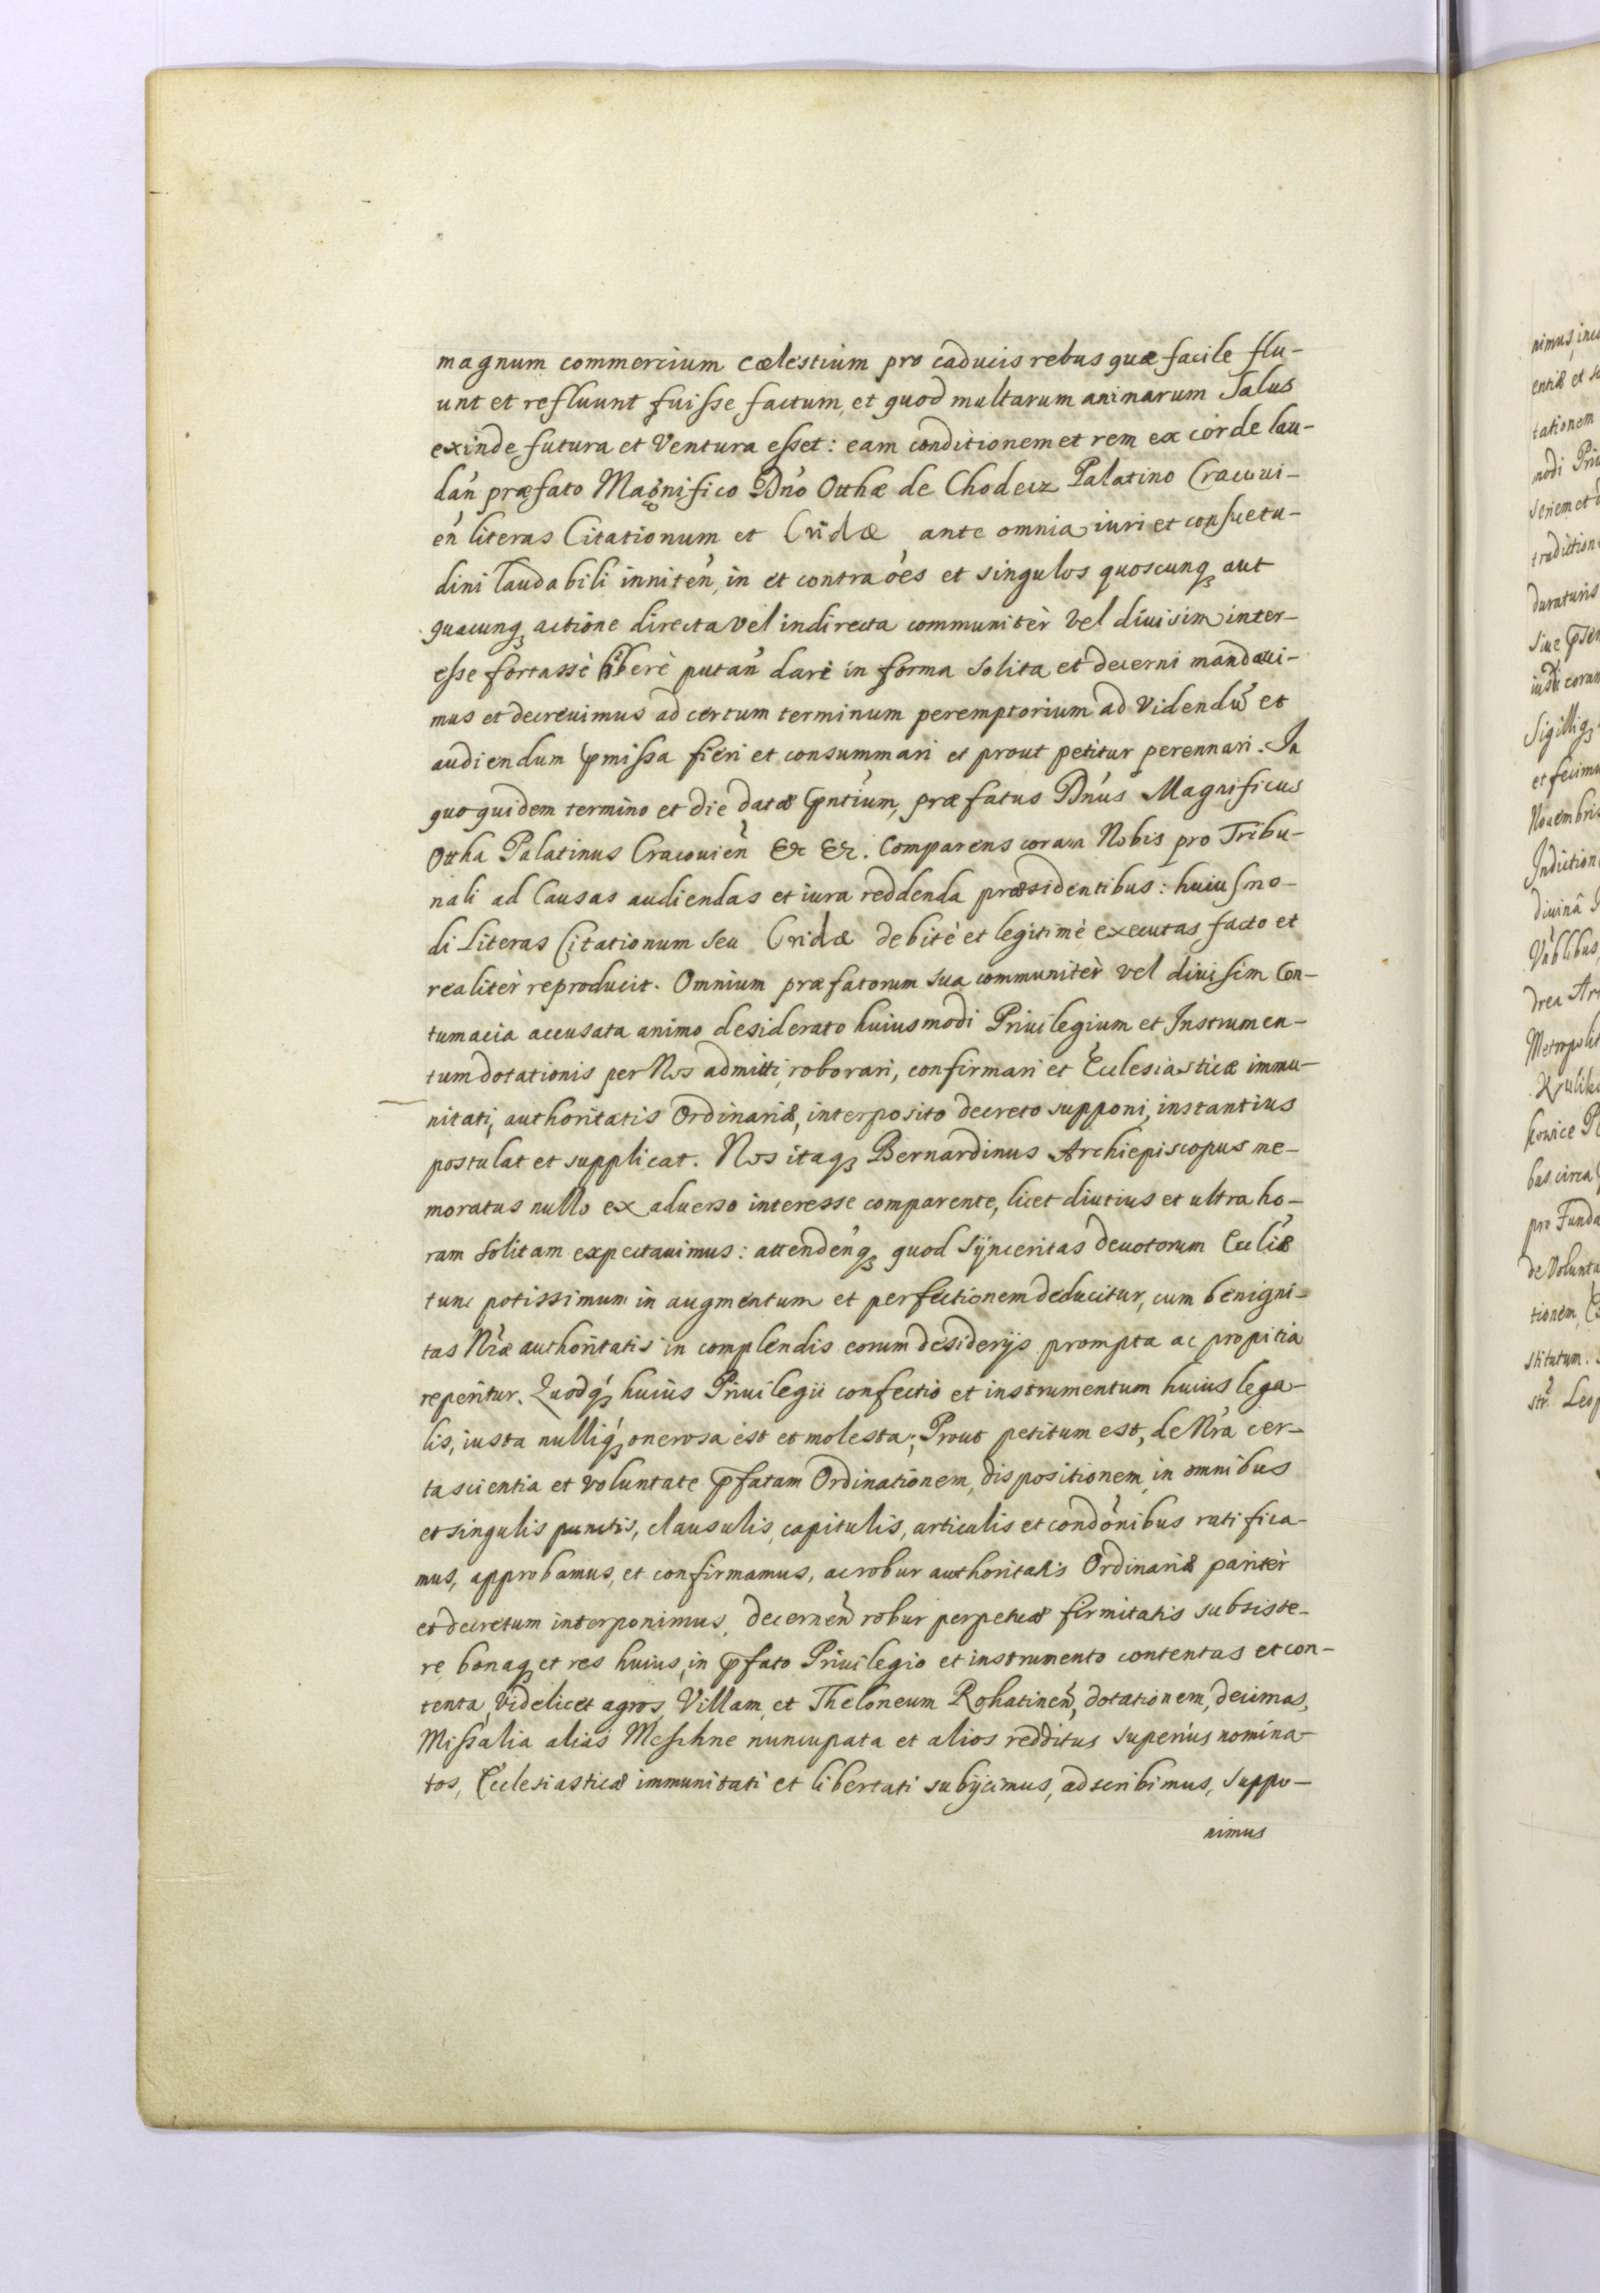 magnum commercium cœlestium pro caducis rebus quæ facile flu-
unt et refluunt fuisse factum, et quod multarum animarum Salus
exinde futura et Ventura esset: eam conditionem et rem ex corde lau-
dan̄ præfato Magnifico Dn̄o Otthæ de Chodecz Palatino Cracoui-
en̄ literas Citationum et Cridæ ante omnia iuri et consuetu-
dini laudabili inniten̄, in et contra ōēs et singulos quoscunq̨ aut
quacunq̨ actione directa vel indirecta communitèr vel diuisim inter-
esse fortassè liberè putan̄ dari in forma solita et decerni mandaui-
mus et decreuimus ad certum terminum peremptorium ad Videndū et
audiendum p̄missa fieri et consummari et prout petitur perennari. In
quo quidem termino et die datæ p̄ntium, præfatus Dn̄us Magnificus
Ottha Palatinus Cracouien̄ &c &c. Comparens coram Nobis pro Tribu-
nali ad Causas audiendas et iura reddenda præsidentibus: huiusmo-
di Literas Citationum seu Cridæ debitè et legitimè executas facto et
realitèr reproducit. Omnium præfatorum sua communitèr vel diuisim Con-
tumacia accusata animo desiderato huiusmodi Priuilegium et Instrumen-
tum dotationis per Nos admitti, roborari, confirmari et Ecclesiasticæ immu-
nitati, authoritatis Ordinariæ, interposito decreto supponi, instantius
postulat et supplicat. Nos itaq̨ Bernardinus Archiepiscopus me-
moratus nullo ex aduerso interesse comparente, licet diutius et ultra ho-
ram solitam expectauimus: attenden̄q̨ quod Sÿnceritas deuotorum Eccl̄iæ
tunc potissimum in augmentum et perfectionem deducitur, cum benigni-
tas Nr̄æ authoritatis in complendis eorum desiderijs prompta ac propitia
reperitur. Quodq̨ huius Priuilegii confectio et instrumentum huius lega-
lis, iusta nulliq̨ onerosa est et molesta; Prout petitum est, de Nr̄a cer-
ta scientia et voluntate p̄fatam Ordinationem, dispositionem, in omnibus
et singulis punctis, clausulis, capitulis, articulis et condōnibus ratifica-
mus, approbamus, et confirmamus, ac robur authoritatis Ordinariæ paritèr
et decretum interponimus, decernen̄ robur perpetuæ firmitatis subsiste-
re bonaq̨ et res huius, in p̄fato Priuilegio et instrumento contentas et con-
tenta, videlicet agros, Villam, et Theloneum Rohatinen̄, dotationem, decimas,
Missalia alias Meschne nuncupata et alios redditus superius nomina-
tos, Ecclesiasticæ immunitati et libertati subÿcimus, adscribimus, suppo-
nimus